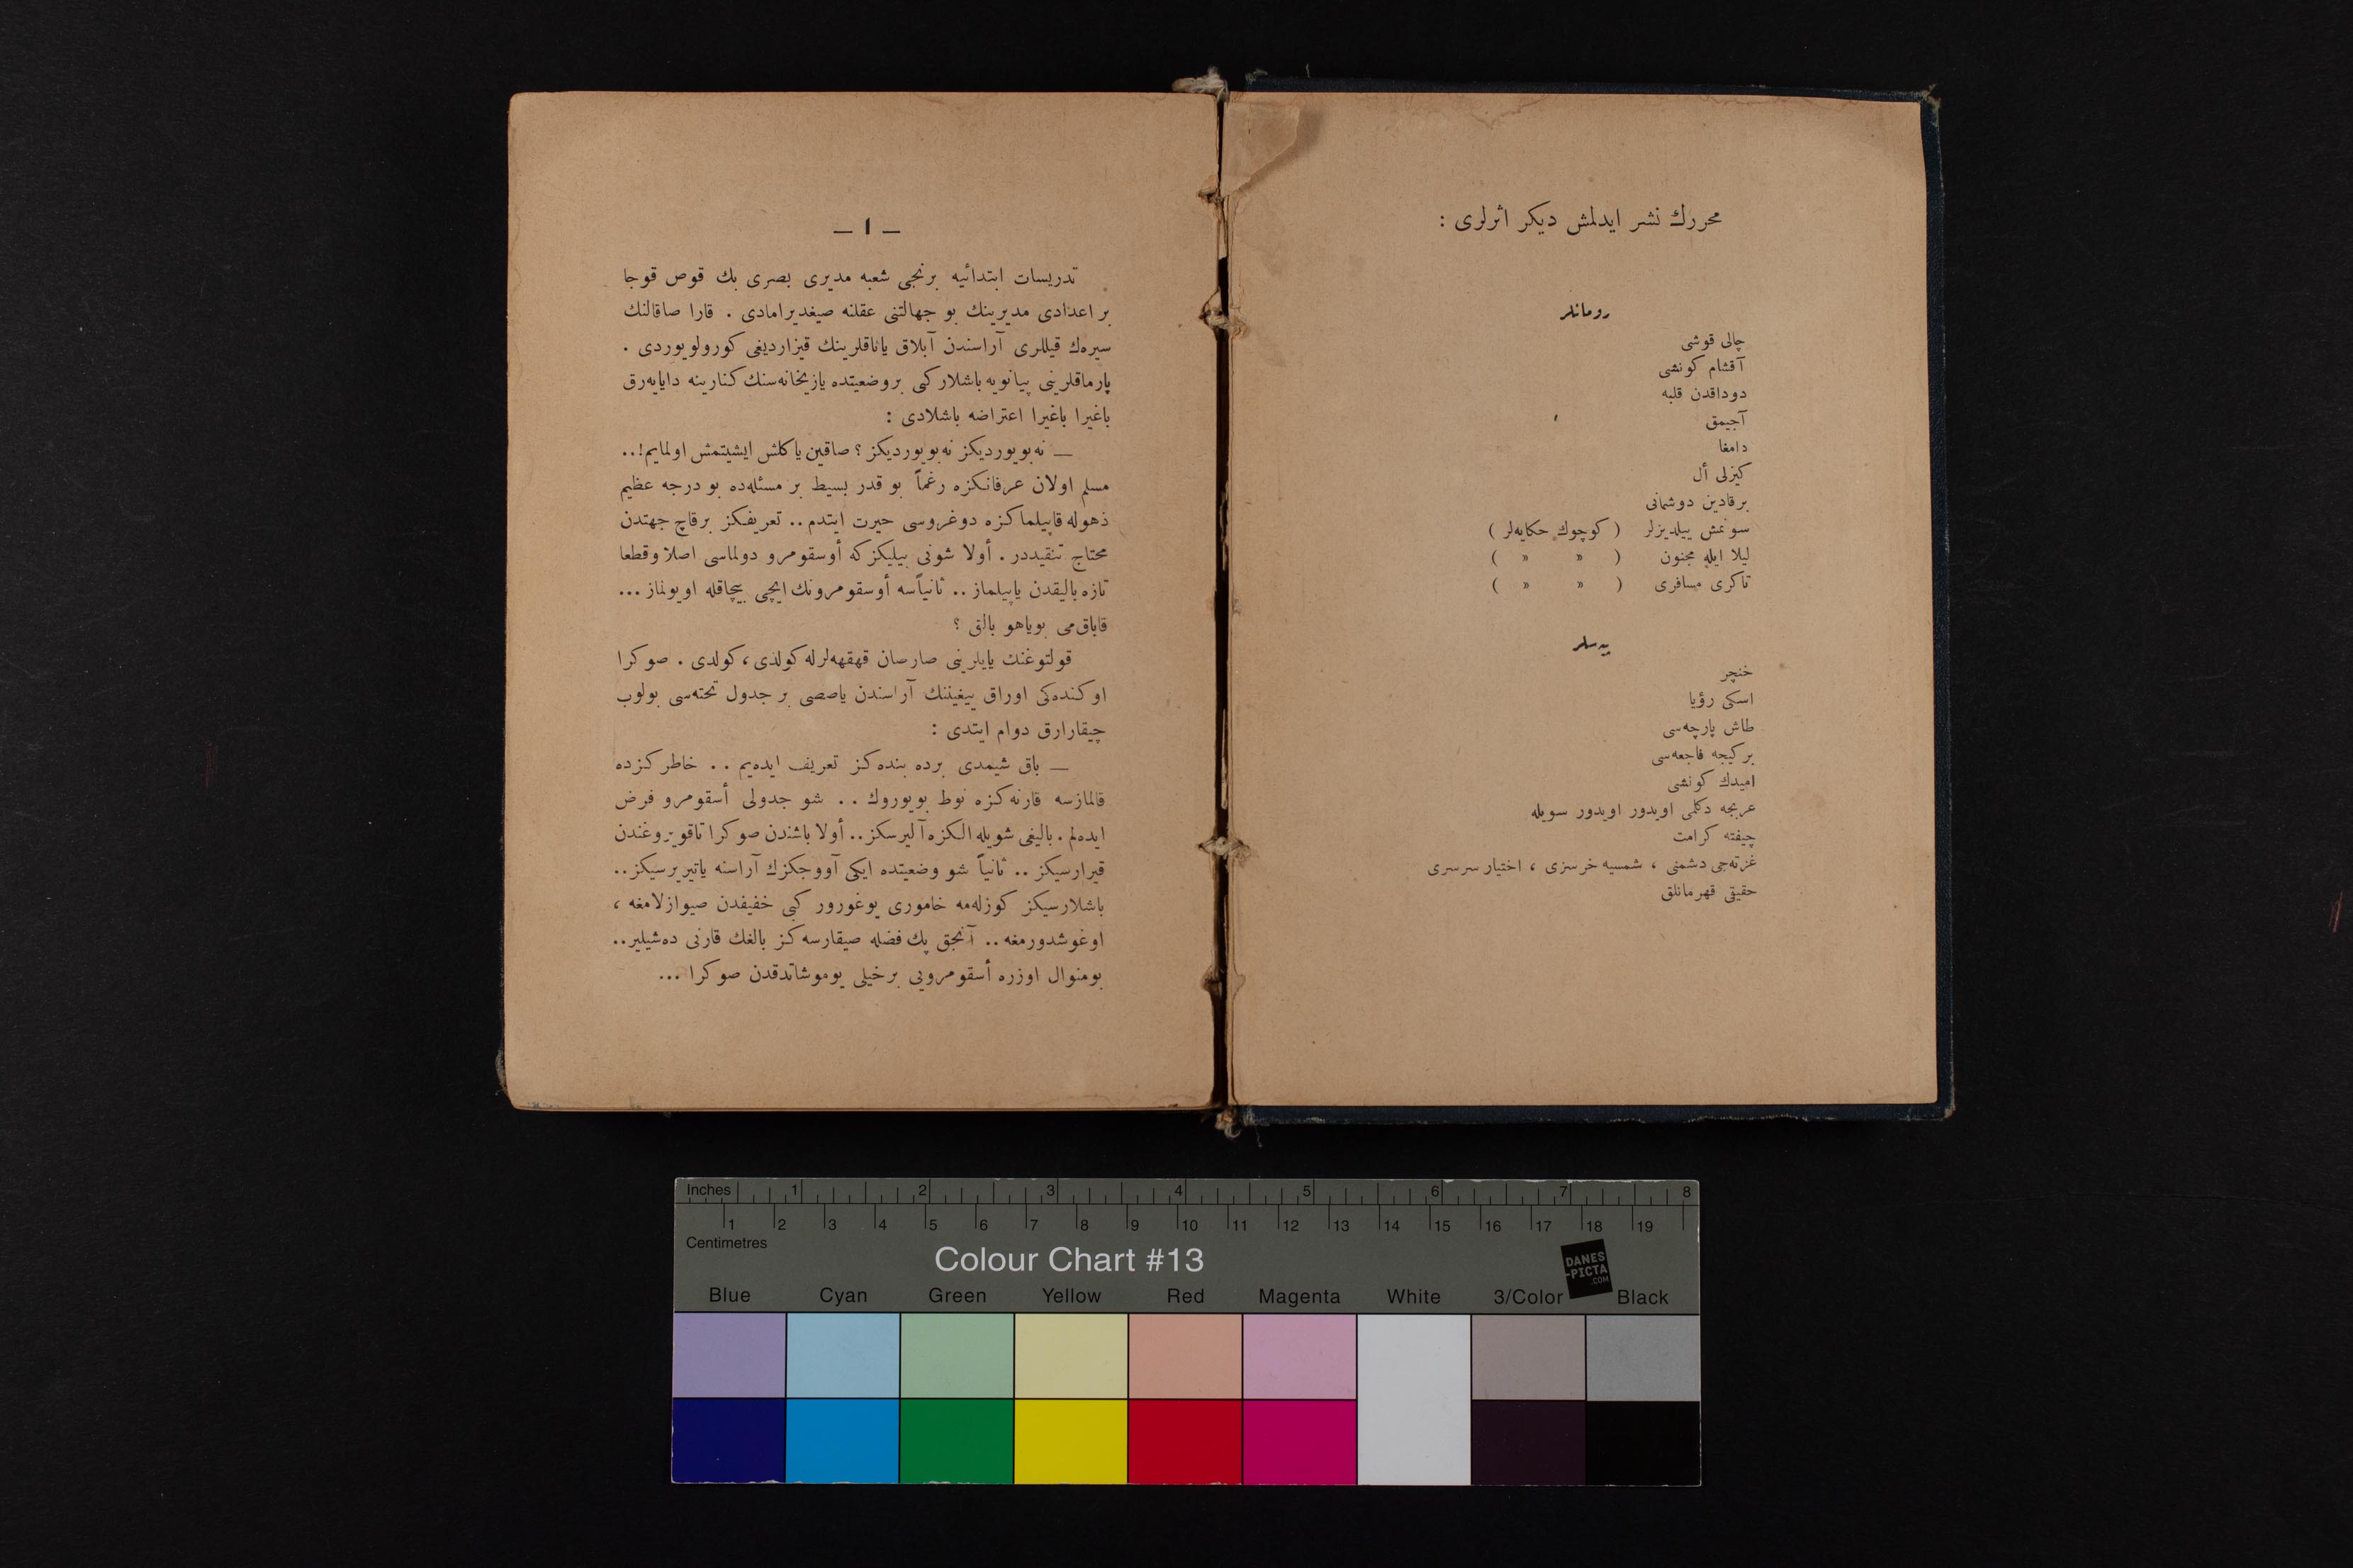 محررك نشر ايدلمش ديكر اثرلرى :
رومانلر
چالى قوشى
آقشام كونشى
دوداقدن قلبه
آجيمق
دامغا
كيزلى أل
برقادين دوشمانى
سونمش ييلديزلر ( كوچوك حكايه‌لر )
ليلا ايله مجنون ( » » )
تاكرى مسافرى ( » » )
پيه‌سلر
خنچر
اسكى رؤيا
طاش پارچه‌سى
بركيجه فاجعه‌سى
اميدك كونشى
عربجه دكلمى اويدور اويدور سويله
چيفته كرامت
غزته‌جى دشمنى ، شمسيه خرسزى ، اختيار سرسرى
حقيقى قهرمانلق
— ١ —
تدريسات ابتدائيه برنجى شعبه مديرى بصرى بك قوص قوجا
بر اعدادى مديرينك بو جهالتنى عقلنه صيغديرامادى . قارا صاقالنك
سيره‌ك قيللرى آراسندن آبلاق ياناقلرينك قيزارديغى كورولويوردى .
پارماقلرينى پيانويه باشلاركى بروضعيتده يازيخانه‌سنك كنارينه دايايه‌رق
باغيرا باغيرا اعتراضه باشلادى :
— نه‌بويورديكز نه‌بويورديكز ؟ صاقين ياكلش ايشيتمش اولمايم!..
مسلم اولان عرفانكزه رغماً بو قدر بسيط بر مسئله‌ده بو درجه عظيم
ذهوله قاپيلماكزه دوغروسى حيرت ايتدم .. تعريفكز برقاچ جهتدن
محتاج تنقيددر . أولا شونى بيليكزكه أوسقومرو دولماسى اصلا وقطعا
تازه باليقدن ياپيلماز .. ثانياًسه أوسقومرونك ايچى بيچاقله اويولماز ...
قاباق‌مى بوياهو بالق ؟
قولتوغنك يايلرينى صارصان قهقهه‌لرله كولدى، كولدى . صوكرا
اوكنده‌كى اوراق ييغيننك آراسندن ياصصى بر جدول تخته‌سى بولوب
چيقارارق دوام ايتدى :
— باق شيمدى برده بنده‌كز تعريف ايده‌يم .. خاطركزده
قالمازسه قارنه‌كزه نوط بويوروك .. شو جدولى أسقومرو فرض
ايده‌لم . باليغى شويله الكزه آليرسكز .. أولا باشندن صوكرا تاقويروغندن
قيرارسيكز .. ثانياً شو وضعيتده ايكى آووجكزك آراسنه ياتيريرسيكز..
باشلارسيكز كوزله‌مه خامورى يوغورور كبى خفيفدن صيوازلامغه ،
اوغوشدورمغه .. آنجق پك فضله صيقارسه‌كز بالغك قارنى ده‌شيلير..
بومنوال اوزره أسقومرويى برخيلى يوموشاتدقدن صوكرا ...
Inches 1 2 3 4 5 6 7 8
1 2 3 4 5 6 7 8 9 10 11 12 13 14 15 16 17 18 19
Centimetres
Colour Chart #13
DANES
-PICTA
.COM
Blue Cyan Green Yellow Red Magenta White 3/Color Black